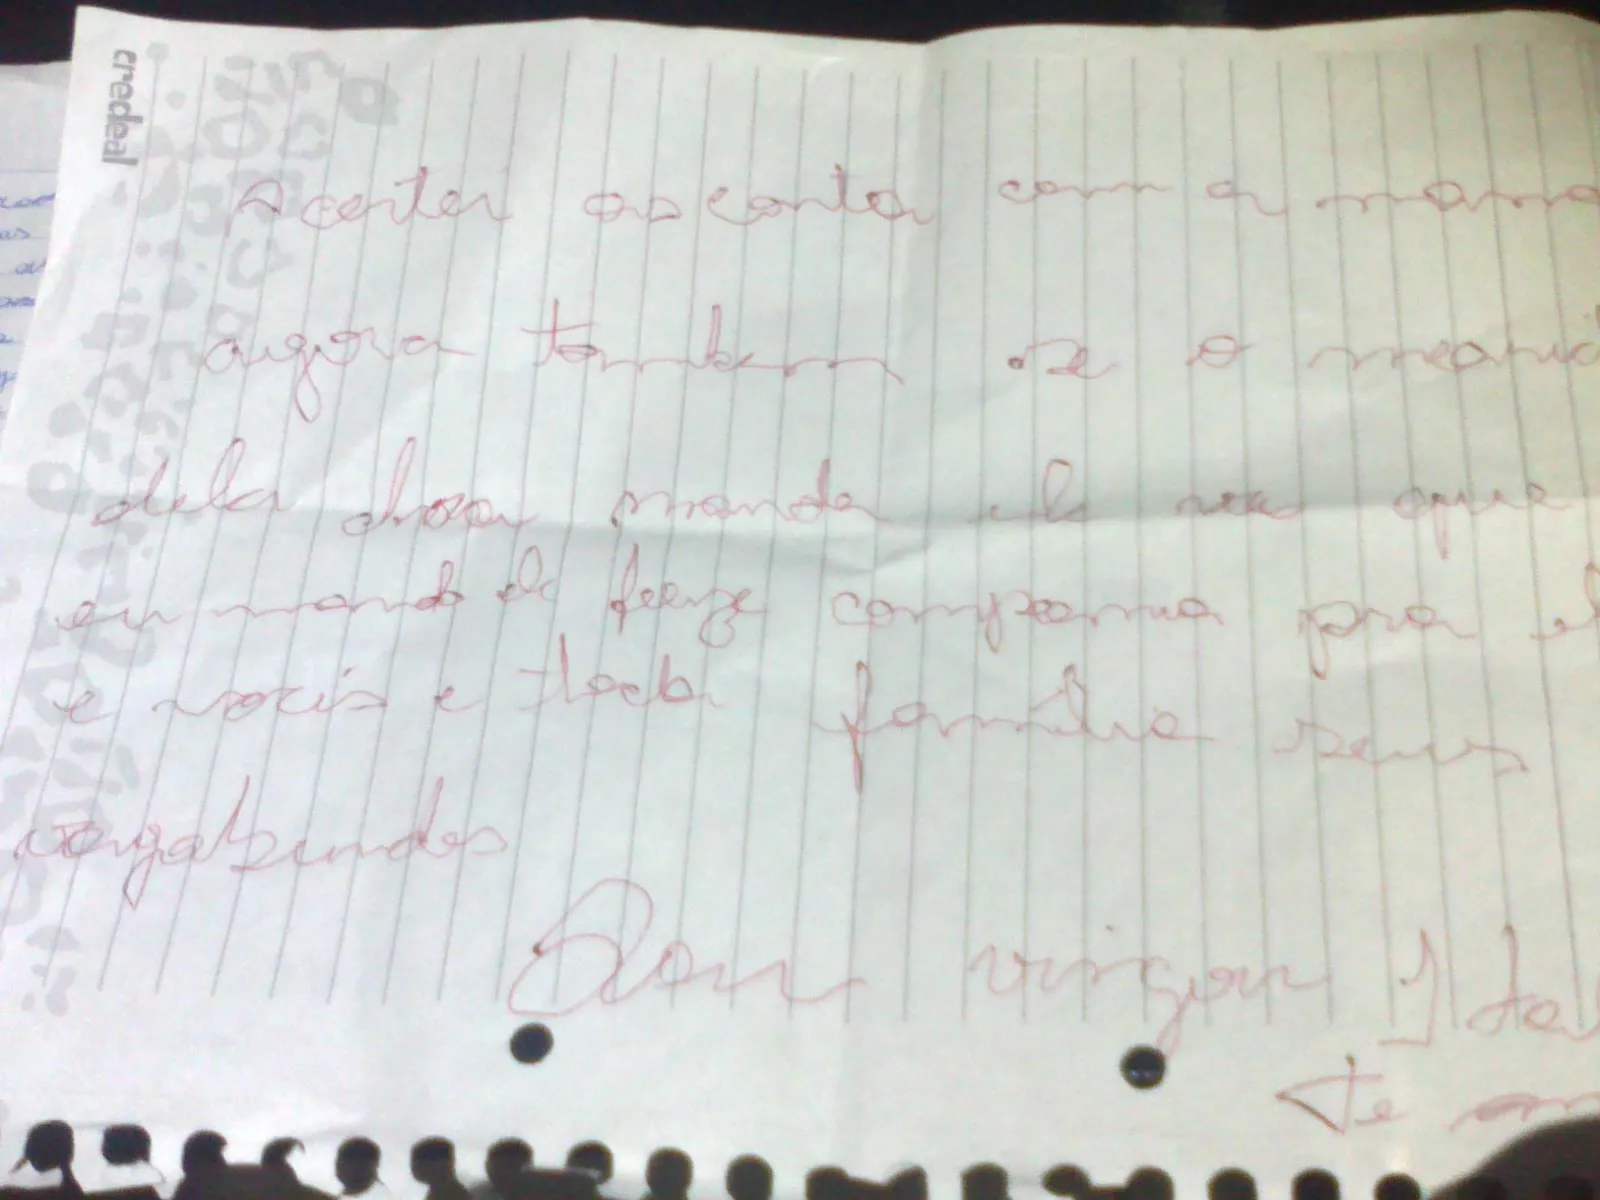 credal
Acertei as conta com a mana
agora tambem se o marid
dela manda ele que
eu mando ele fazer compania pra el
e voceis e toda familia seus
vagabundos
vingar
Te am